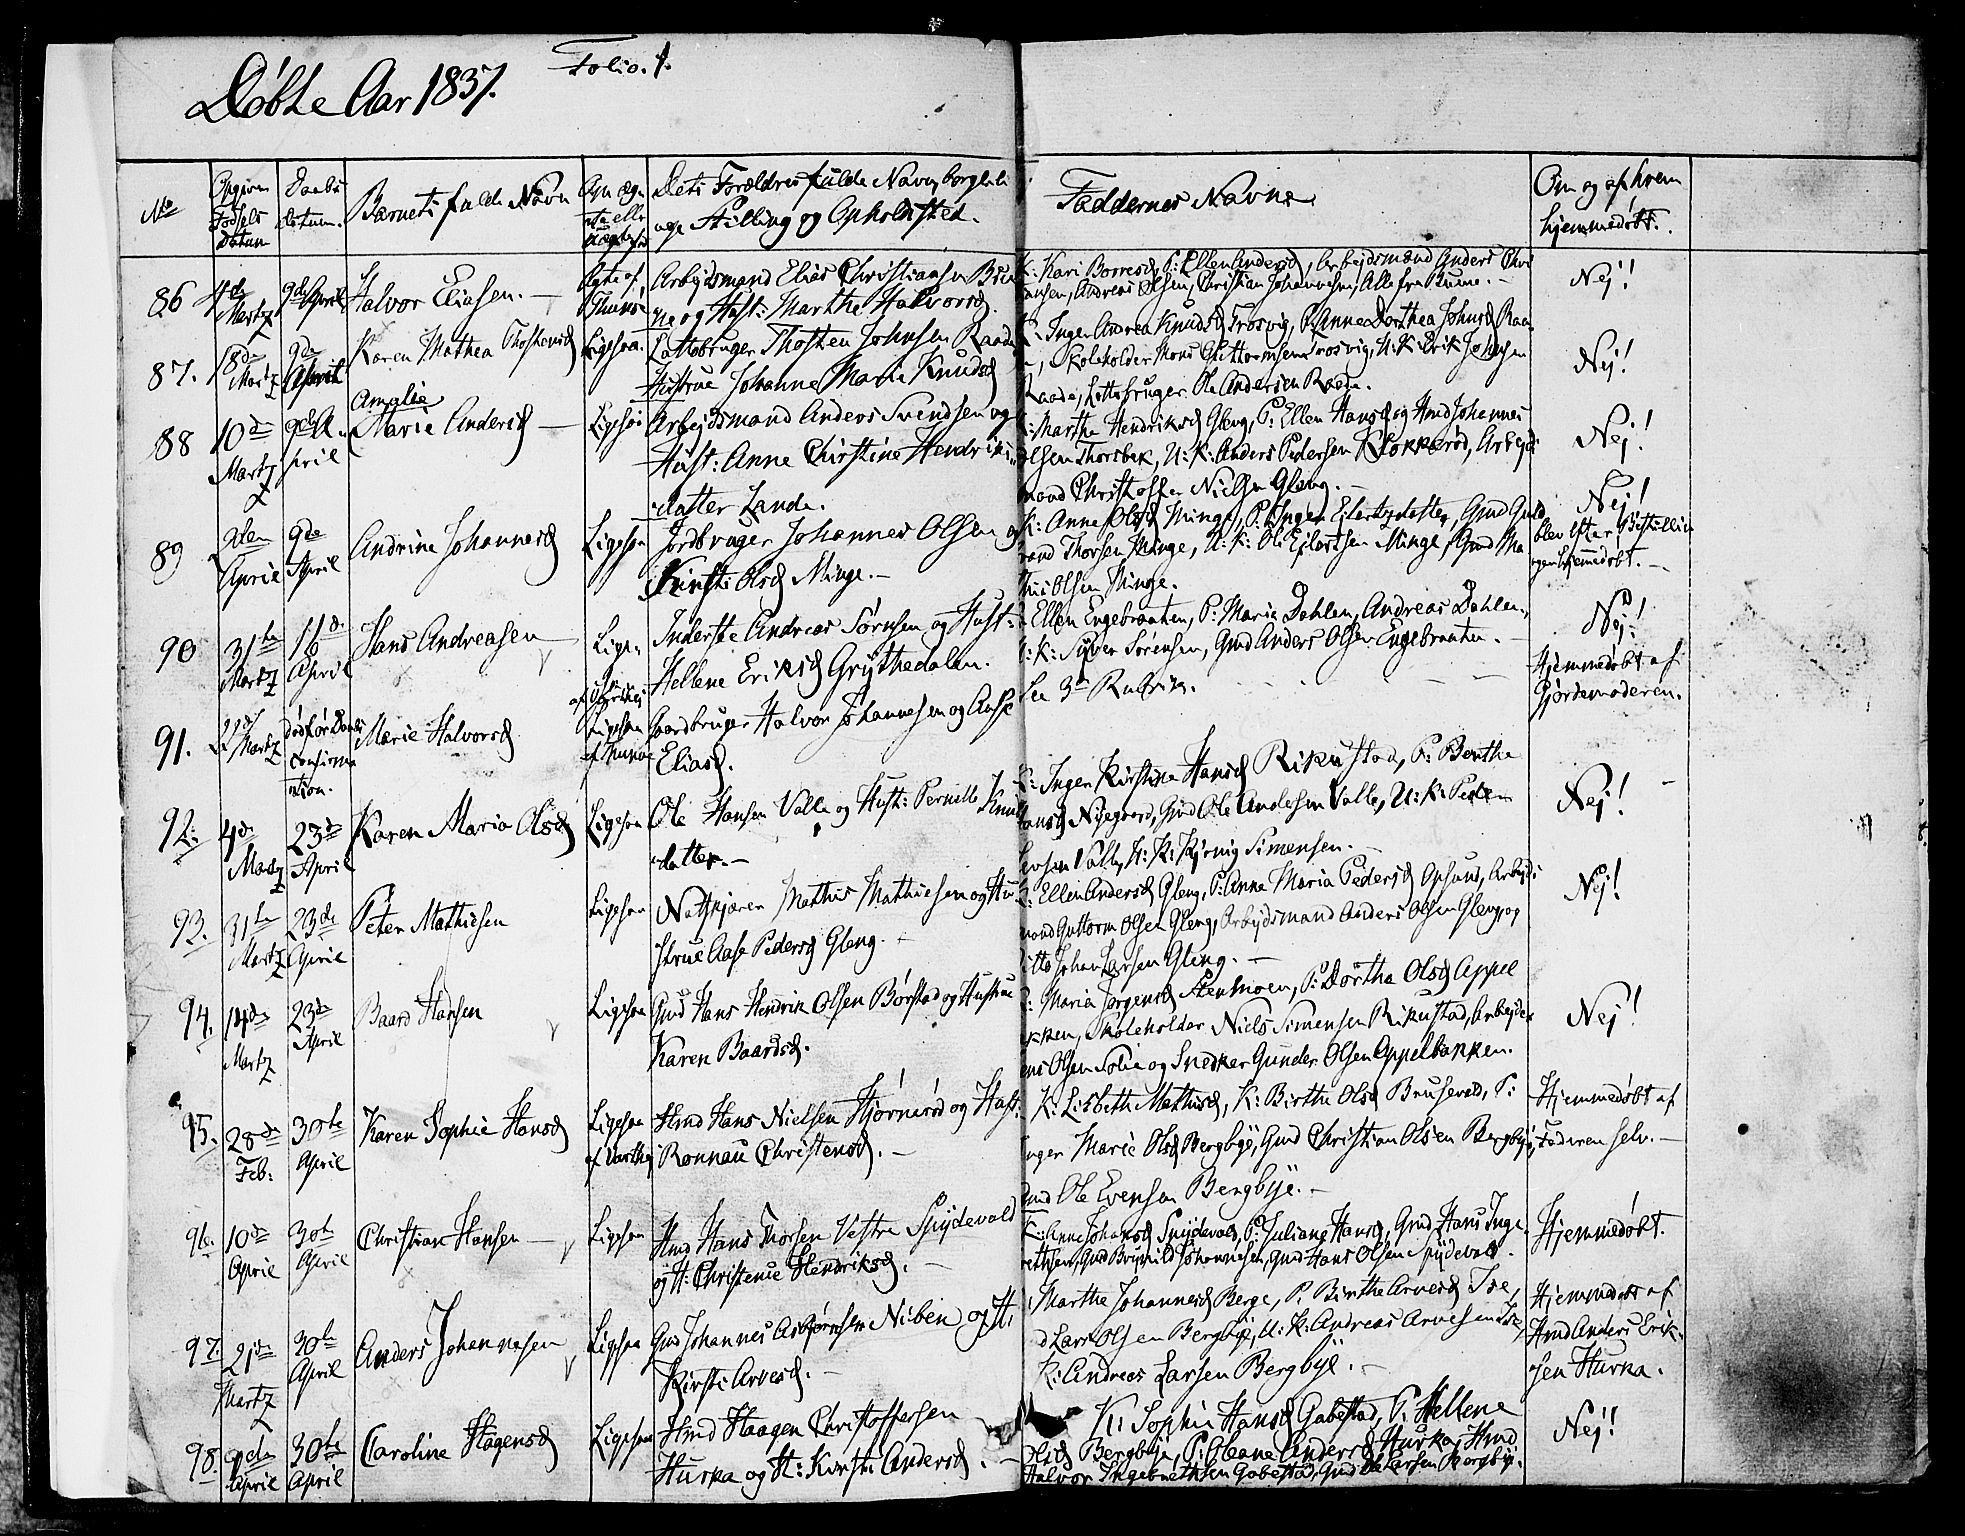 Døbte Aar 1837.
Folio. 1.
No
Opgiven Fødsels Datum
Daabs Datum.
Barnets fulde Navn
Om ægte eller uægte fød
Dets Forældres fulde Navn, borgerlige Stilling og Opholdsted.
Faddernes Navne
Om og af hvem hjemmedøbt.
86 4de Martz 9de April Halvor Eliasen. — Ægte af Thunøe
Arbejdsmand Elias Christiansen
og Hust: Marthe Halvorsd
K: Kari Borresd, P: Ellen Andersd, Arbejdsmand Anders Chri
stiansen, Andreas Olsen, Christian Johannesen, Alle fra Buene. —
Nej!
87. 18de Martz 9de April Karen Mathea Thostensd Ligesaa.
Lottobruger Thosten Johnsen Raade
Hustrue Johanne Marie Knudsd
K: Inger Andrea Knudsd Trosvig, P: Anne Dorthea Johnsd Raa
de, Skoleholder Mons Guttormsen Trosvig, U: K: Erik Johnsen
Raade, Lottobruger Ole Andersen Raade.
Nej!
88 10de Martz 9de April Amalie Marie Andersd — Ligesaa
Arbejdsmand Anders Svendsen og
Hust: Anne Christine Hendriks
datter Lande.
K: Marthe Hendriksd Gleng, P: Ellen Hansd og Hmd Johannes
Olsen Thorsbek, U: K: Anders Pedersen Klokkerød, Arbejds
mand Christoffer Nielsen Gleng. —
Nej!
89 2den April 9de April Andrine Johannesd Ligesaa
Jordbruger Johannes Olsen og
Kirsti Olsd Minge. —
K: Anne Olsd Minge, P: Inger Eilertzdatter, Gmd Guld
brand Thorsen Minge, U: K: Ole Eilertsen Minge, Gmd Ma
this Olsen Minge.
Nej!
blev efter
gen hjemmedøbt. —
90 31te Martz 16de April Hans Andreasen — Lige.
Inderste Andreas Sørnsen og Hust:
Hellene Eriksd Grythedalen.
Ellen Engebraaten, P: Marie Dahlen, Andreas Dahlen,
U: K: Syver Sørensen, Gmd Anders Olsen Engebraaten. —
Nej!
91. 22de Martz død før Daabs Confirmation. Marie Halvorsd Ligesaa af Thunøe
Gaardbruger Halvor Johannesen og Aase
Eliasd.
See 3de Rubrik.
Hjemmedøbt af
Gjordemoderen.
92. 4de Martz 23de April Karen Maria Olsd Ligesaa
Ole Hansen Valle og Hust: Pernelle Knuds
datter. —
K: Inger Kirstine Hansd Rikustad, P: Berthe
Hansd Nygaard, Gmd Ole Andersen Valle, U: K: Peder
Iversen Valle, U: K: Simensen. —
Nej!
93. 31te Martz 23de April Peter Mathiesen Ligesaa
Mathis Mathiesen og Hu
strue Aase Pedersd Gleng. —
K: Ellen Andersd Gleng, P: Anne Maria Pedersd Opsund, Arbejds
mand Guttorm Olsen Gleng, Arbejdsmand Anders Olsen Gleng og
Ditto Johan Larsen Gleng. —
Nej!
94. 14de Martz 23de April Baard Hansen Ligesaa
Gmd Hans Hendrik Olsen Børstad og Hustrue
Karen Baardsd.
K: Maria Jørgensd Steenmoen, P: Dorthe Olsd Appel
bakken, Skoleholder Niels Simensen Rikustad, Arbejder
Jens Olsen Solie og Snedker Gunder Olsen Appelbakken.
Nej!
95. 28de Feb. 30te April Karen Sophie Hansd Ligesaa af Varteig
Hmd Hans Nielsen Hjørnerød og Hust:
Ronnau Christensd. —
K: Lisbeth Mathisd, K: Birthe Olsd Brusevold, P:
Inger Marie Olsd Bergbye, Gmd Christian Olsen Bergbye,
Gmd Ole Evensen Bergbye. —
Hjemmedøbt af
Faderen selv. —
96. 10de April 30te April Christian Hansen — Ligesaa
Hmd Hans Thorsen Vestre Spydevold
og H: Christence Hendriksd. —
K: Anne Johansd Spydevold, P: Juliane Hansd, Gmd Hans Inge
brethsen, Gmd Brynild Johannesen, Gmd Hans Olsen Spydevold.
Hjemmedøbt.
97. 21de Martz 30te April Anders Johannesen Ligesaa
Gmd Johannes Asbjørnsen Niben og H:
Kirsti Arvesd. —
Marthe Johannesd Berge, P: Birthe Arvesd Ise,
Gmd Lars Olsen Bergbye, U: K: Andreas Arvesen Ise,
K: Andreas Larsen Bergbye. —
Hjemmedøbt af
Hmd Anders Erik
sen Hurka.
98. 9de April 30te April Caroline Hagensd Ligesaa
Hmd Haagen Christoffersen
Hurka og H: Kirsti Andersd. —
K: Sophie Hansd Gabestad, P: Hellene
Olsd Bergbye, P: Oleane Andersd Hurka, Hmd
Halvor Ingebrethsen Gabestad, Gmd Ole Larsen Bergbye.
Nej!